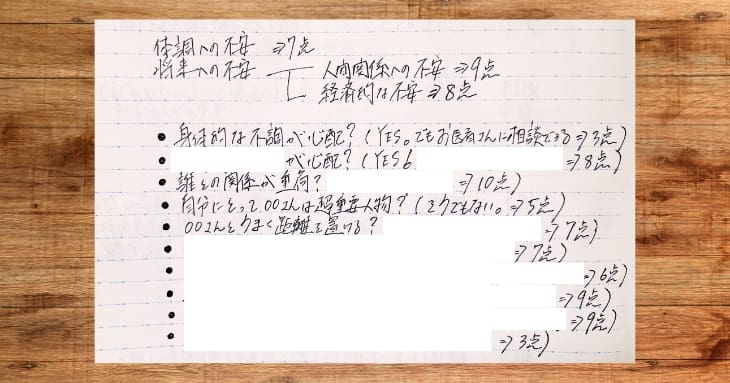 体調への不安 ⇒7点
将来への不安 人間関係への不安 ⇒9点
経済的な不安 ⇒8点
• 身体的な不調が心配？(YES。でもお医者さんに相談できる⇒3点)
• が心配？(YES ⇒8点)
• 誰との関係が重荷？ ⇒10点)
• 自分にとって〇〇さんは超重要人物？(そうでもない。⇒5点)
• 〇〇さんとうまく距離を置ける？ ⇒7点)
• ⇒7点)
• ⇒6点)
• ⇒9点)
• ⇒9点)
• ⇒3点)